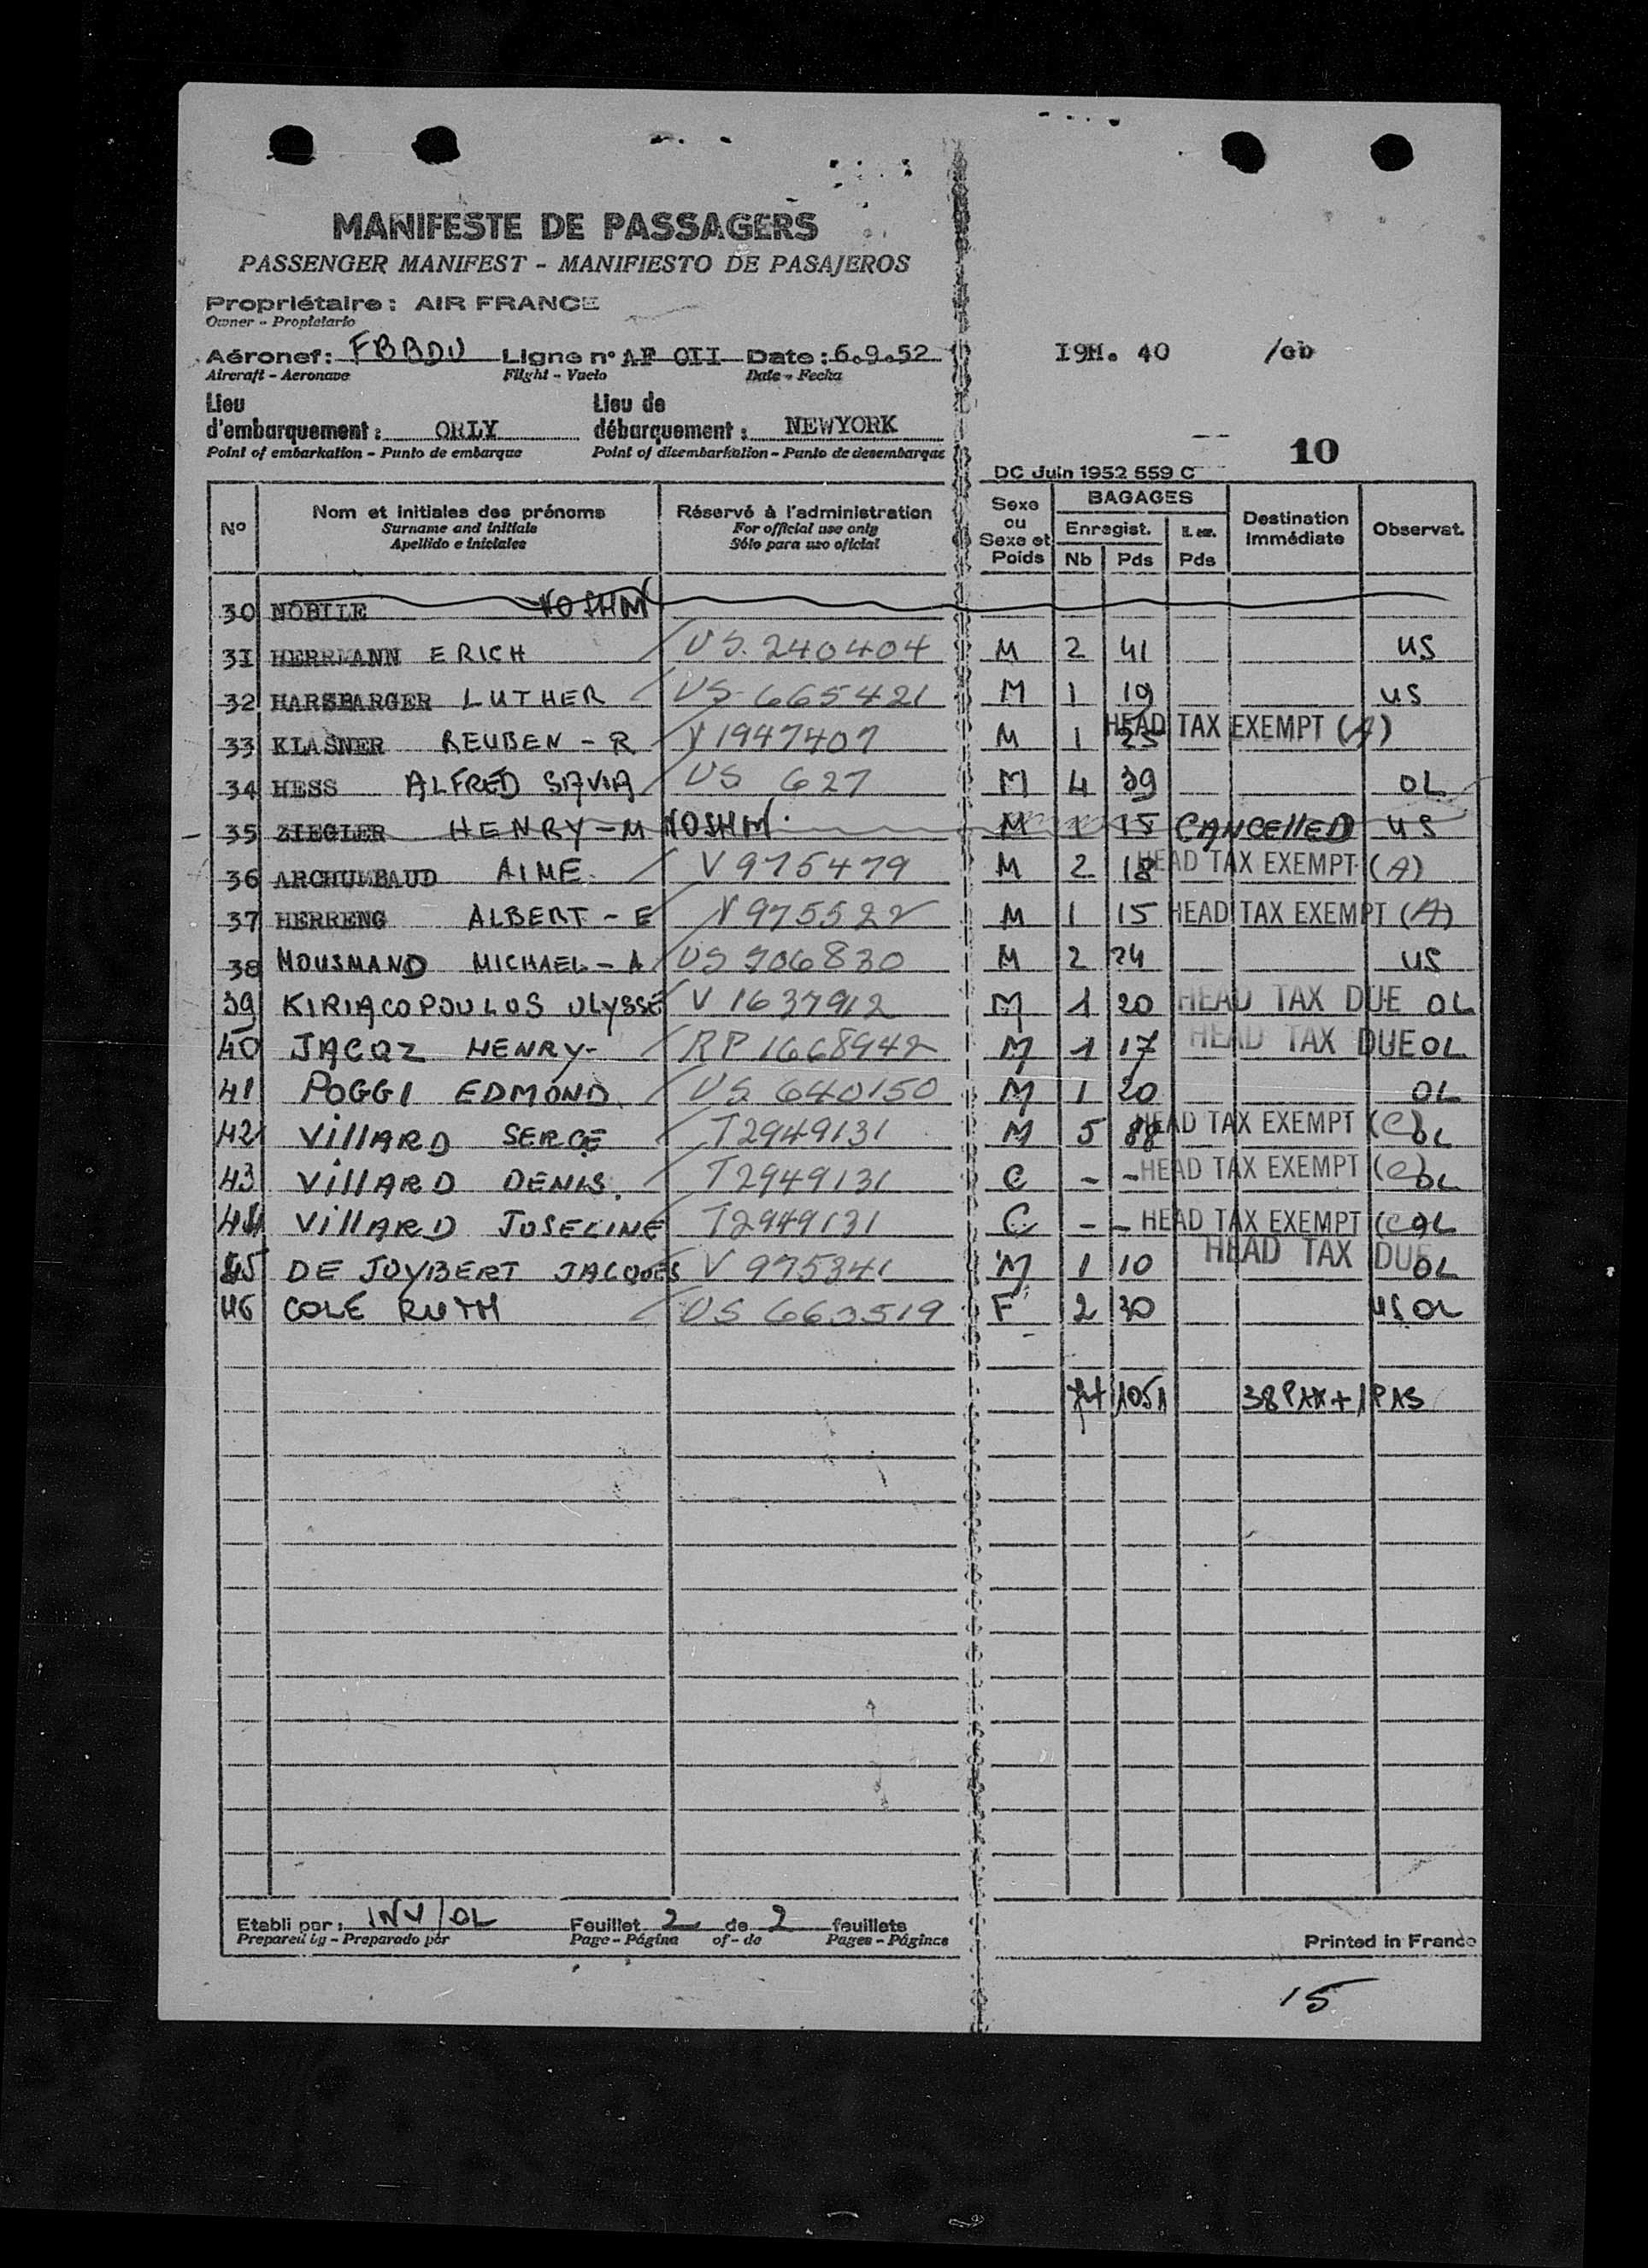 MANIFESTE DE PASSAGERS
PASSENGER MANIFEST - MANIFIESTO DE PASAJEROS
Propriétaire : AIR FRANCE
Owner - Propietario
Aéronef : FBBDU Ligne n° AF OII Date : 6.9.52 I9H. 40 /Gb
Aircraft - Aeronave Flight - Vuelo Date - Fecha
Lieu d'embarquement : ORLY Lieu de débarquement : NEWYORK
Point of embarkation - Punto de embarque Point of disembarkation - Punto de desembarque
10
DC Juin 1952 559 C
N° Nom et initiales des prénoms Réservé à l'administration Sexe ou Sexe et Poids BAGAGES Destination Immédiate Observat.
Surname and initials For official use only Enregist.
Apellido e iniciales Sólo para uso oficial Nb Pds Pds
30 NOBILE NOSHM
3I HERRMANN ERICH US. 240404 M 2 41 US
32 HARSBARGER LUTHER US 665421 M 1 19 US
33 KLASNER REUBEN - R V 1947407 M 1 25 HEAD TAX EXEMPT (A)
34 HESS ALFRED US 627 M 4 39 OL
35 ZIEGLER HENRY - M NOSHM. M 1 15 CANCELLED US
36 ARCHUMBAUD AIME. V 975479 M 2 18 HEAD TAX EXEMPT (A)
37 HERRENG ALBERT - E V 975522 M 1 15 HEAD TAX EXEMPT (A)
38 MOUSMAND MICHAEL - A US 706830 M 2 24 US
39 KIRIACOPOULOS ULYSSE V 1637912 M 1 20 HEAD TAX DUE OL
40 JACQZ HENRY - RP 1668942 M 1 17 HEAD TAX DUE OL
41 POGGI EDMOND. US 640150 M 1 20 OL
42 VillARD SERGE T2949131 M 5 88 HEAD TAX EXEMPT (C) OL
43 VillARD DENIS. T2949131 C - - HEAD TAX EXEMPT (C) OL
44 VillARD JOSELINE T2949131 C - - HEAD TAX EXEMPT (C) OL
45 DE JOYBERT JACQUES V 975341 M 1 10 HEAD TAX DUE OL
46 COLE RUTH US 663519 F 2 30 US OL
74 1051 38 PAX + 1 PAS
Etabli par : INV/OL Feuillet 2 de 2 feuillets
Prepared by - Preparado por Page - Página of - de Pages - Páginas Printed in France
15